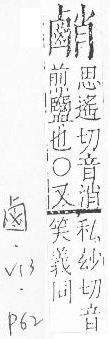 䴛
思遙切音消私玅切音
前鹽也○又笑義同
鹵.V13.P62